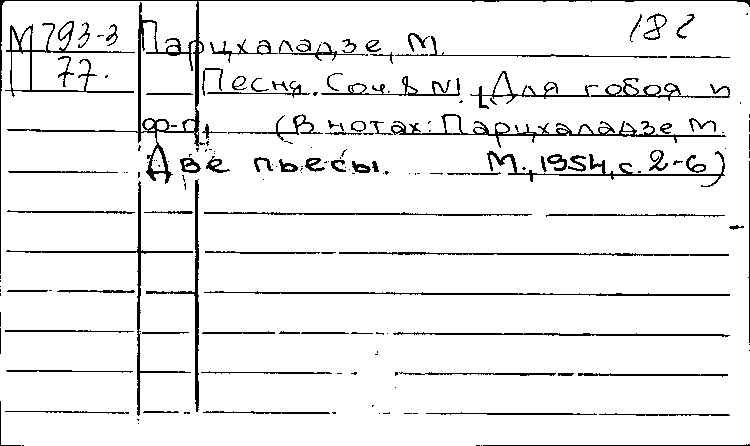 М 793-3 Парцхаладзе, М. 182
77. Песня. Соч. 8 №1 [Для гобоя и
ф-п] (В нотах: Парцхаладзе, М.
Две пьесы. М., 1954, с. 2-6)